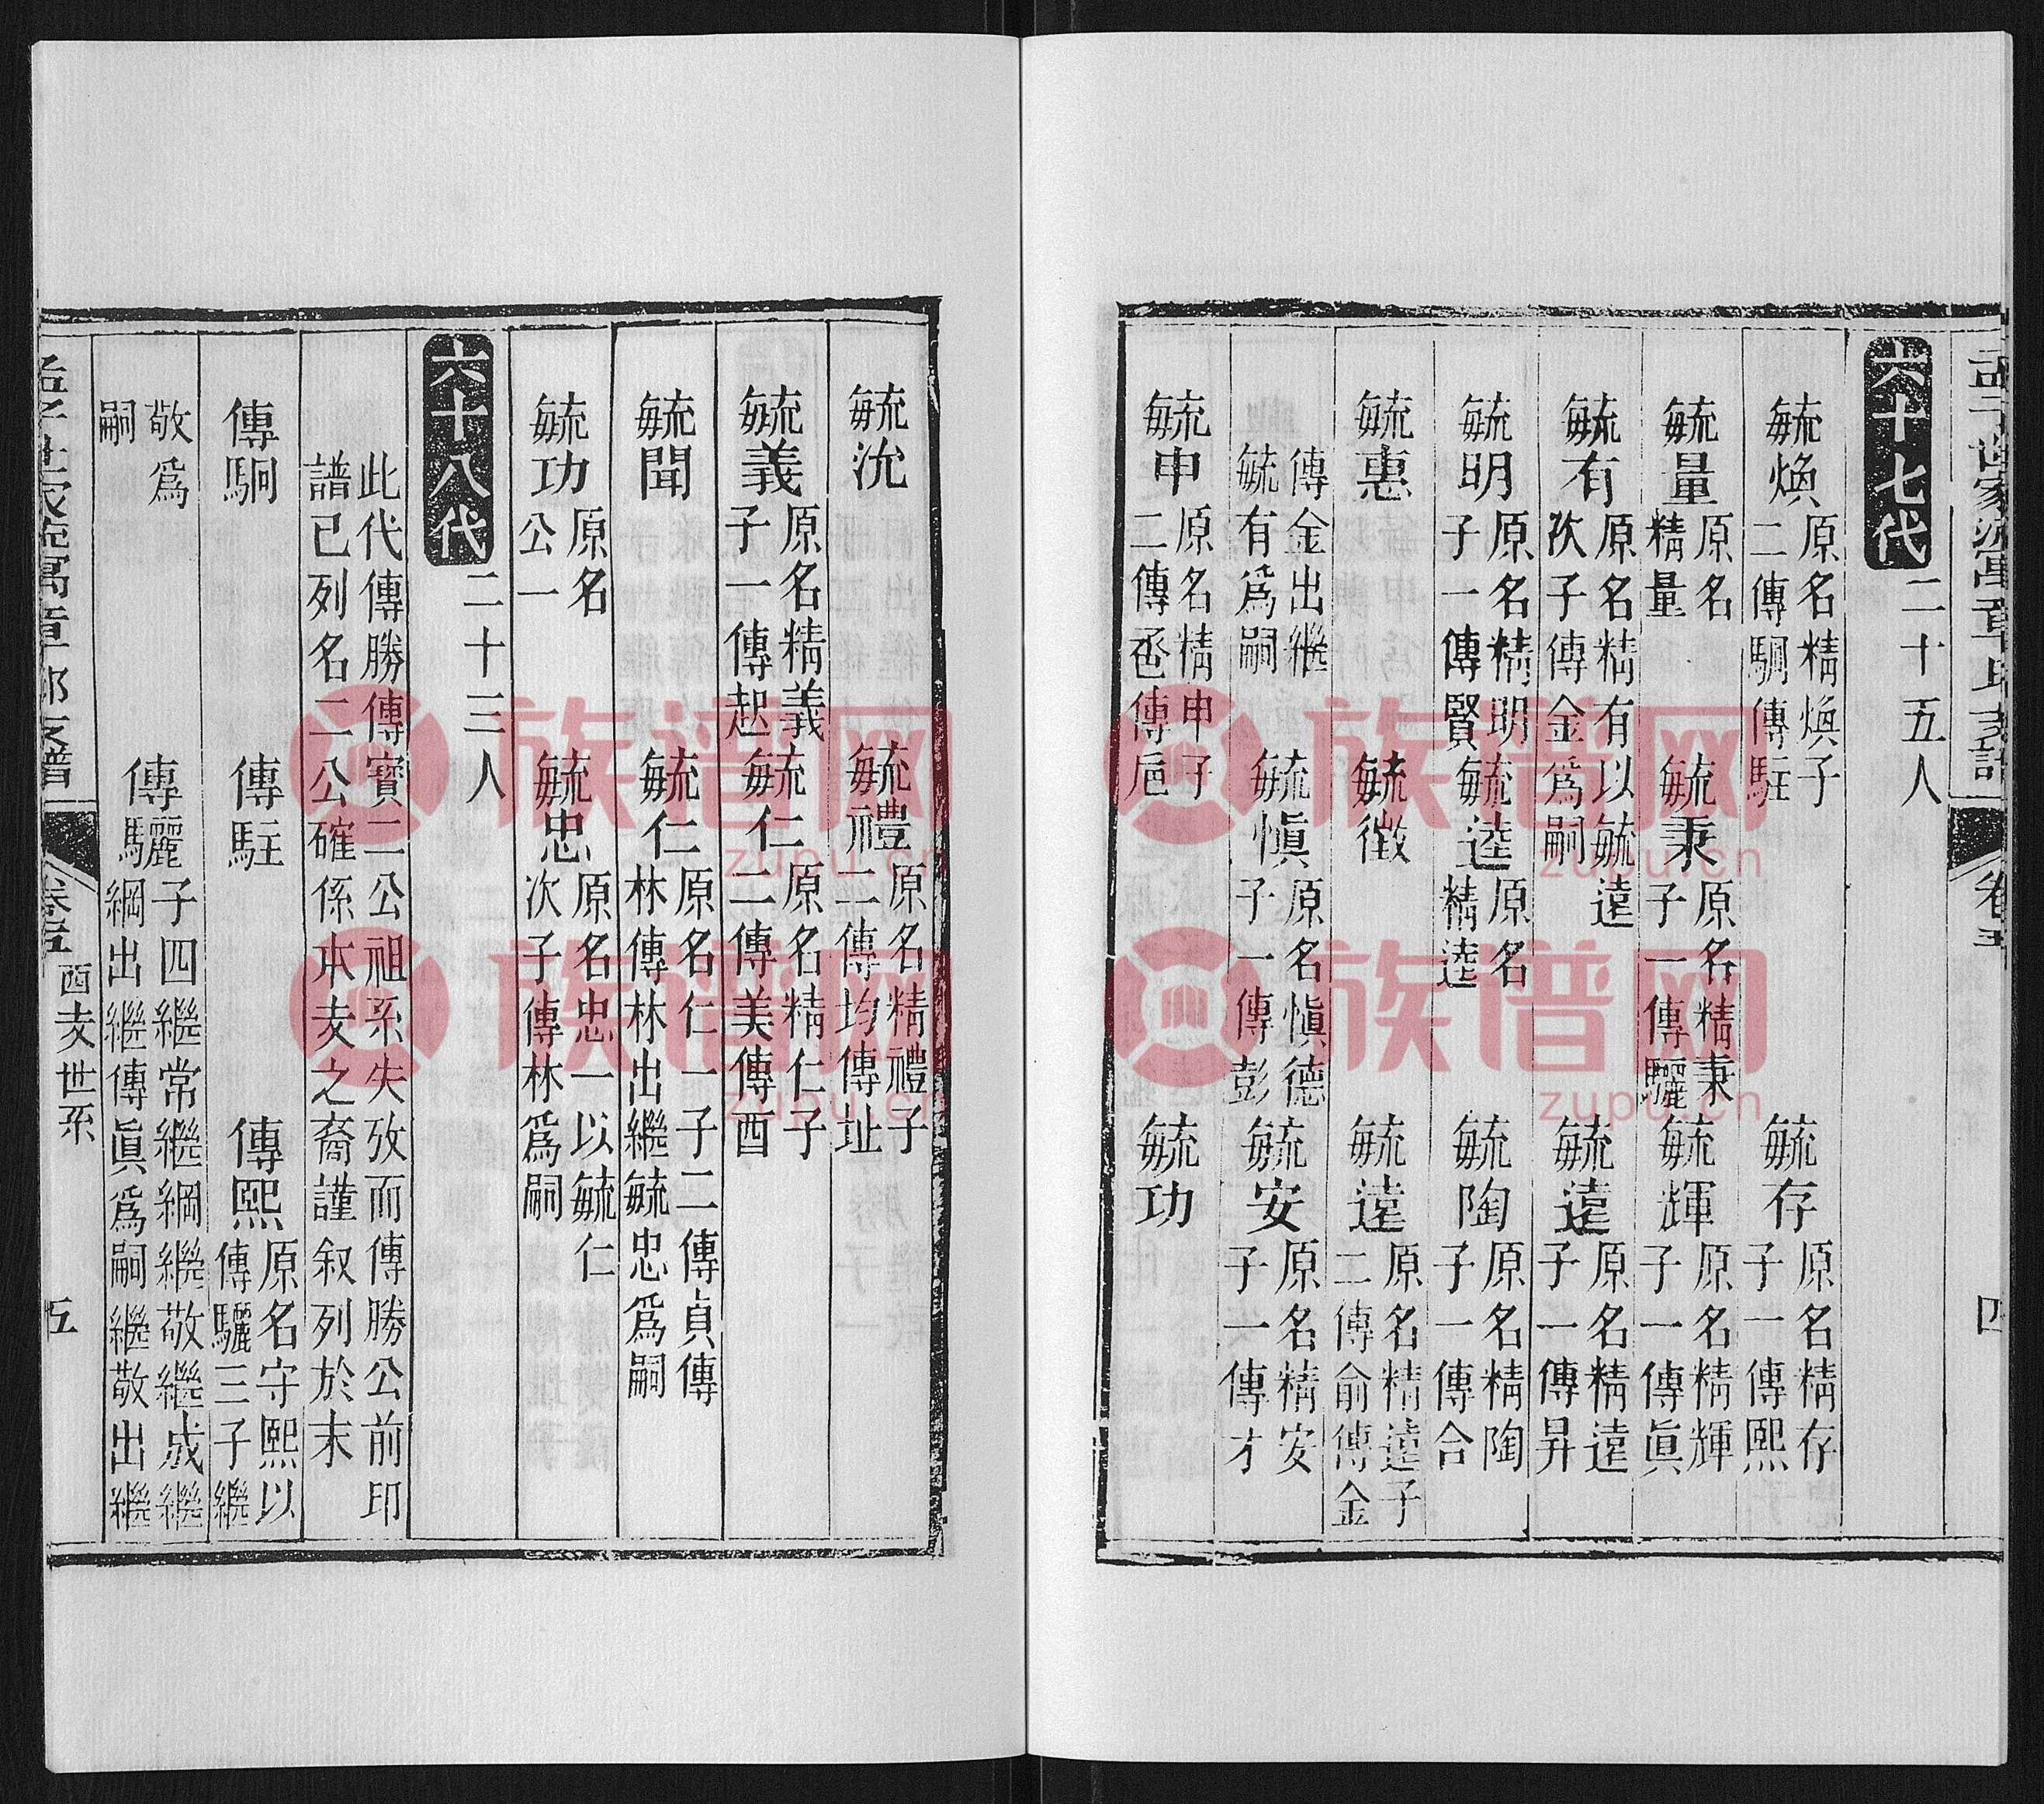 六十七代 二十五人
毓煥 原名精煥子二傳駉傳駐
毓存 原名精存子一傳熙
毓量 原名精量
毓秉 原名精秉子一傳驪
毓輝 原名精輝子一傳眞
毓有 原名精有以毓遠次子傳金爲嗣
毓遠 原名精遠子一傳昇
毓明 原名精明子一傳賢
毓逵 原名精逵
毓陶 原名精陶子一傳合
毓惠
毓徵
毓遠 原名精遠子二傳俞傳金
傳金出繼毓有爲嗣
毓愼 原名愼德子一傳彭
毓安 原名精安子一傳才
毓申 原名精申子二傳丞傳卮
毓功
卷五
四
毓沇
毓禮 原名精禮子二傳均傳址
毓義 原名精義子一傳起
毓仁 原名精仁子二傳美傳酉
毓聞
毓仁 原名仁一子二傳貞傳林傳林出繼毓忠爲嗣
毓功 原名公一
毓忠 原名忠一以毓仁次子傳林爲嗣
六十八代 二十三人
此代傳勝傳寶二公祖系失攷而傳勝公前印
譜已列名二公確係本支之裔謹叙列於末
傳駉
傳駐
傳熙 原名守熙以傳驪三子繼
敬爲嗣
傳驪 子四繼常繼綱繼敬繼成繼綱出繼傳眞爲嗣繼敬出繼
孟子世家流寓章邱支譜
卷五
酉支世系
五
族谱网
zupu.cn
族谱网
zupu.cn
族谱网
zupu.cn
族谱网
zupu.cn